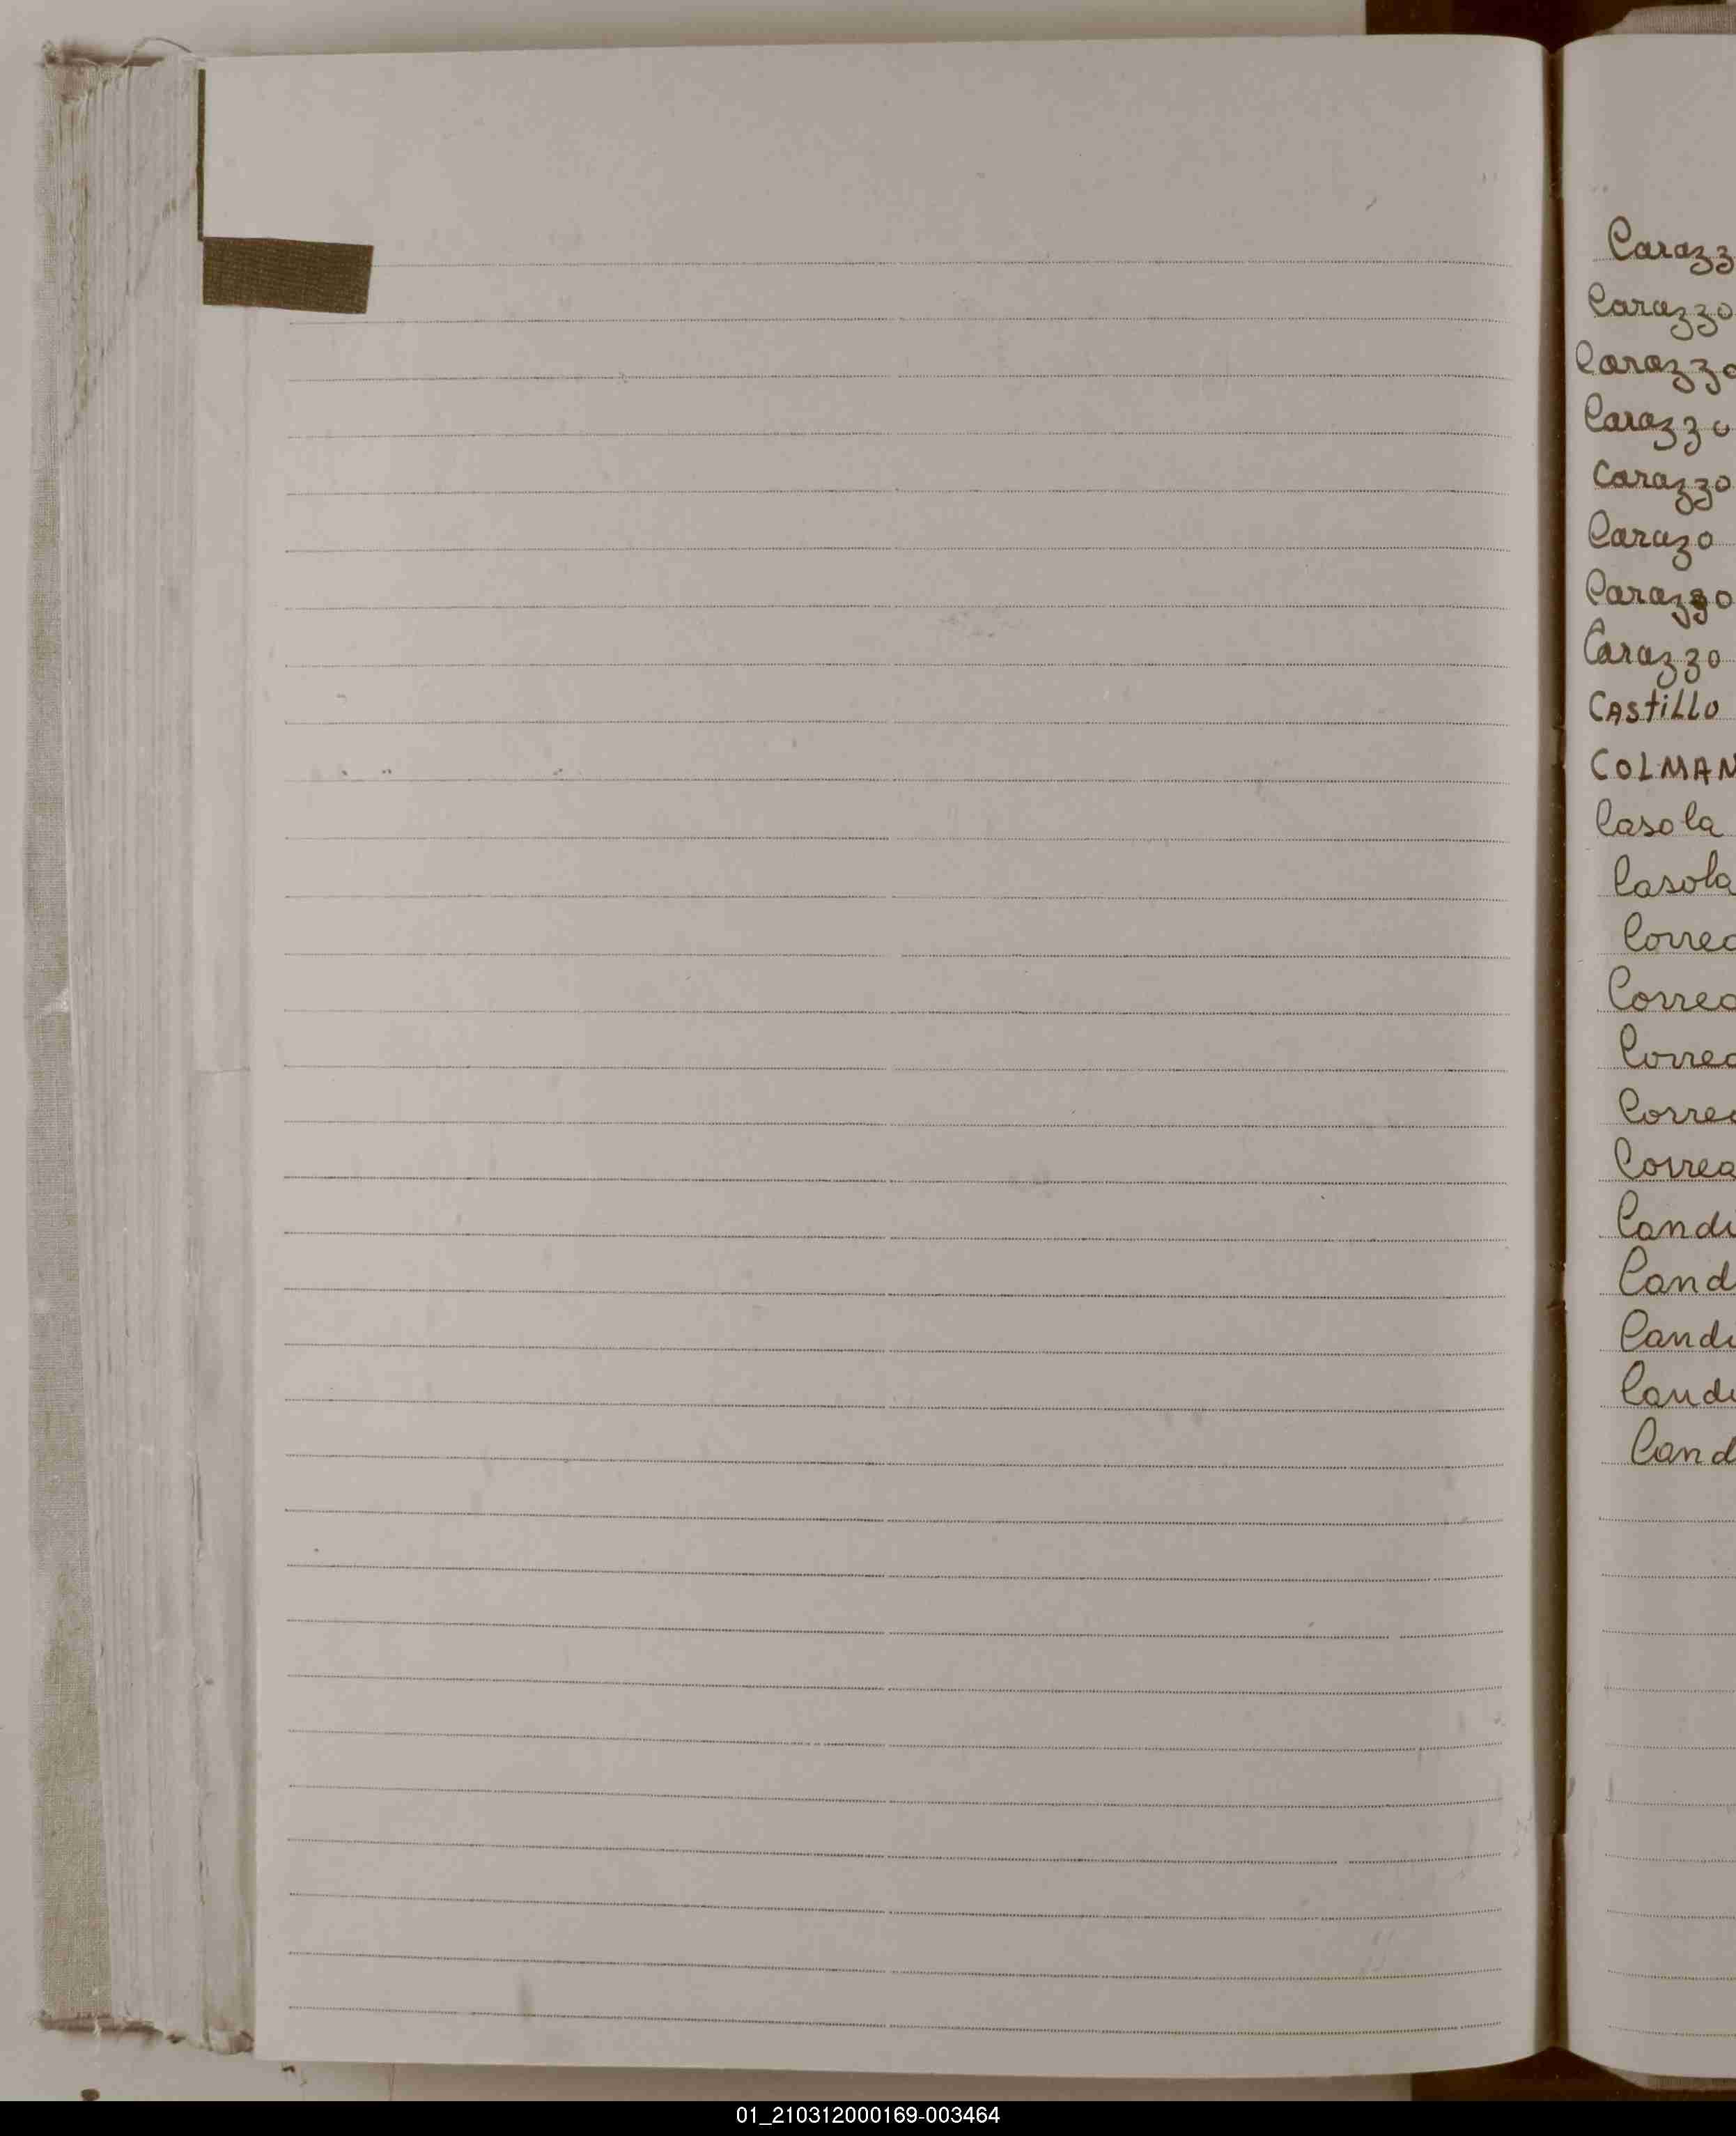 Carazz
Carazzo
Carazzo
Carazzo
Carazzo
Carazo
Carazzo
Carazzo
CAStiLLO
COLMAN
Casola
Casola
Correa
Correa
Correa
Correa
Correa
Candi
Cand
Candi
Candi
Cand
01_210312000169-003464